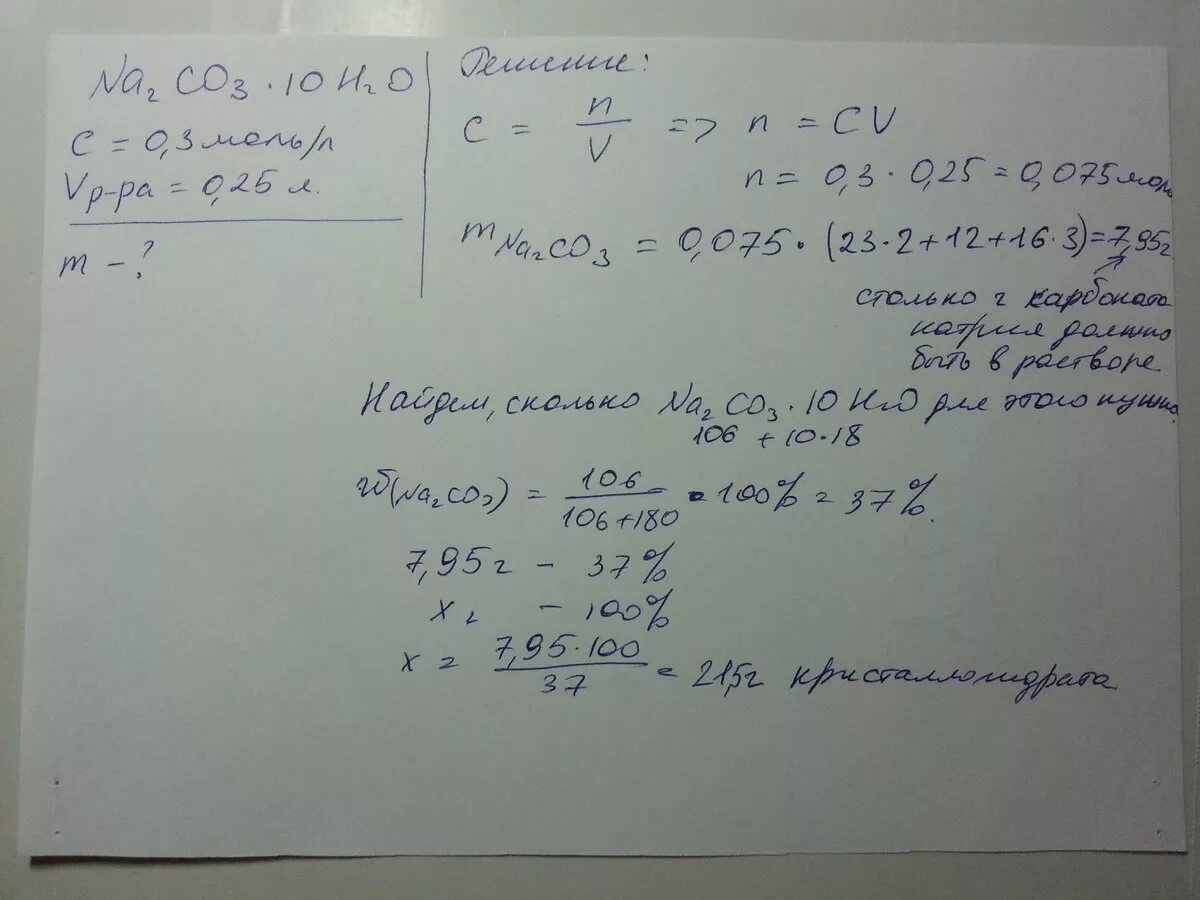 Na₂CO₃·10H₂O
C = 0,3 моль/л
Vр-ра = 0,25 л.
m - ?
Решение:
C = n/V => n = CV
n = 0,3 · 0,25 = 0,075 моль
mNa₂CO₃ = 0,075 · (23·2+12+16·3) = 7,95г
столько г карбоната
натрия должно
быть в растворе.
Найдем, сколько Na₂CO₃·10H₂O для этого нужно
106 + 10·18
ω(Na₂CO₃) = 106/(106+180) · 100% = 37%.
7,95г - 37%
x г - 100%
x = 7,95·100/37 = 21,5г кристаллогидрата